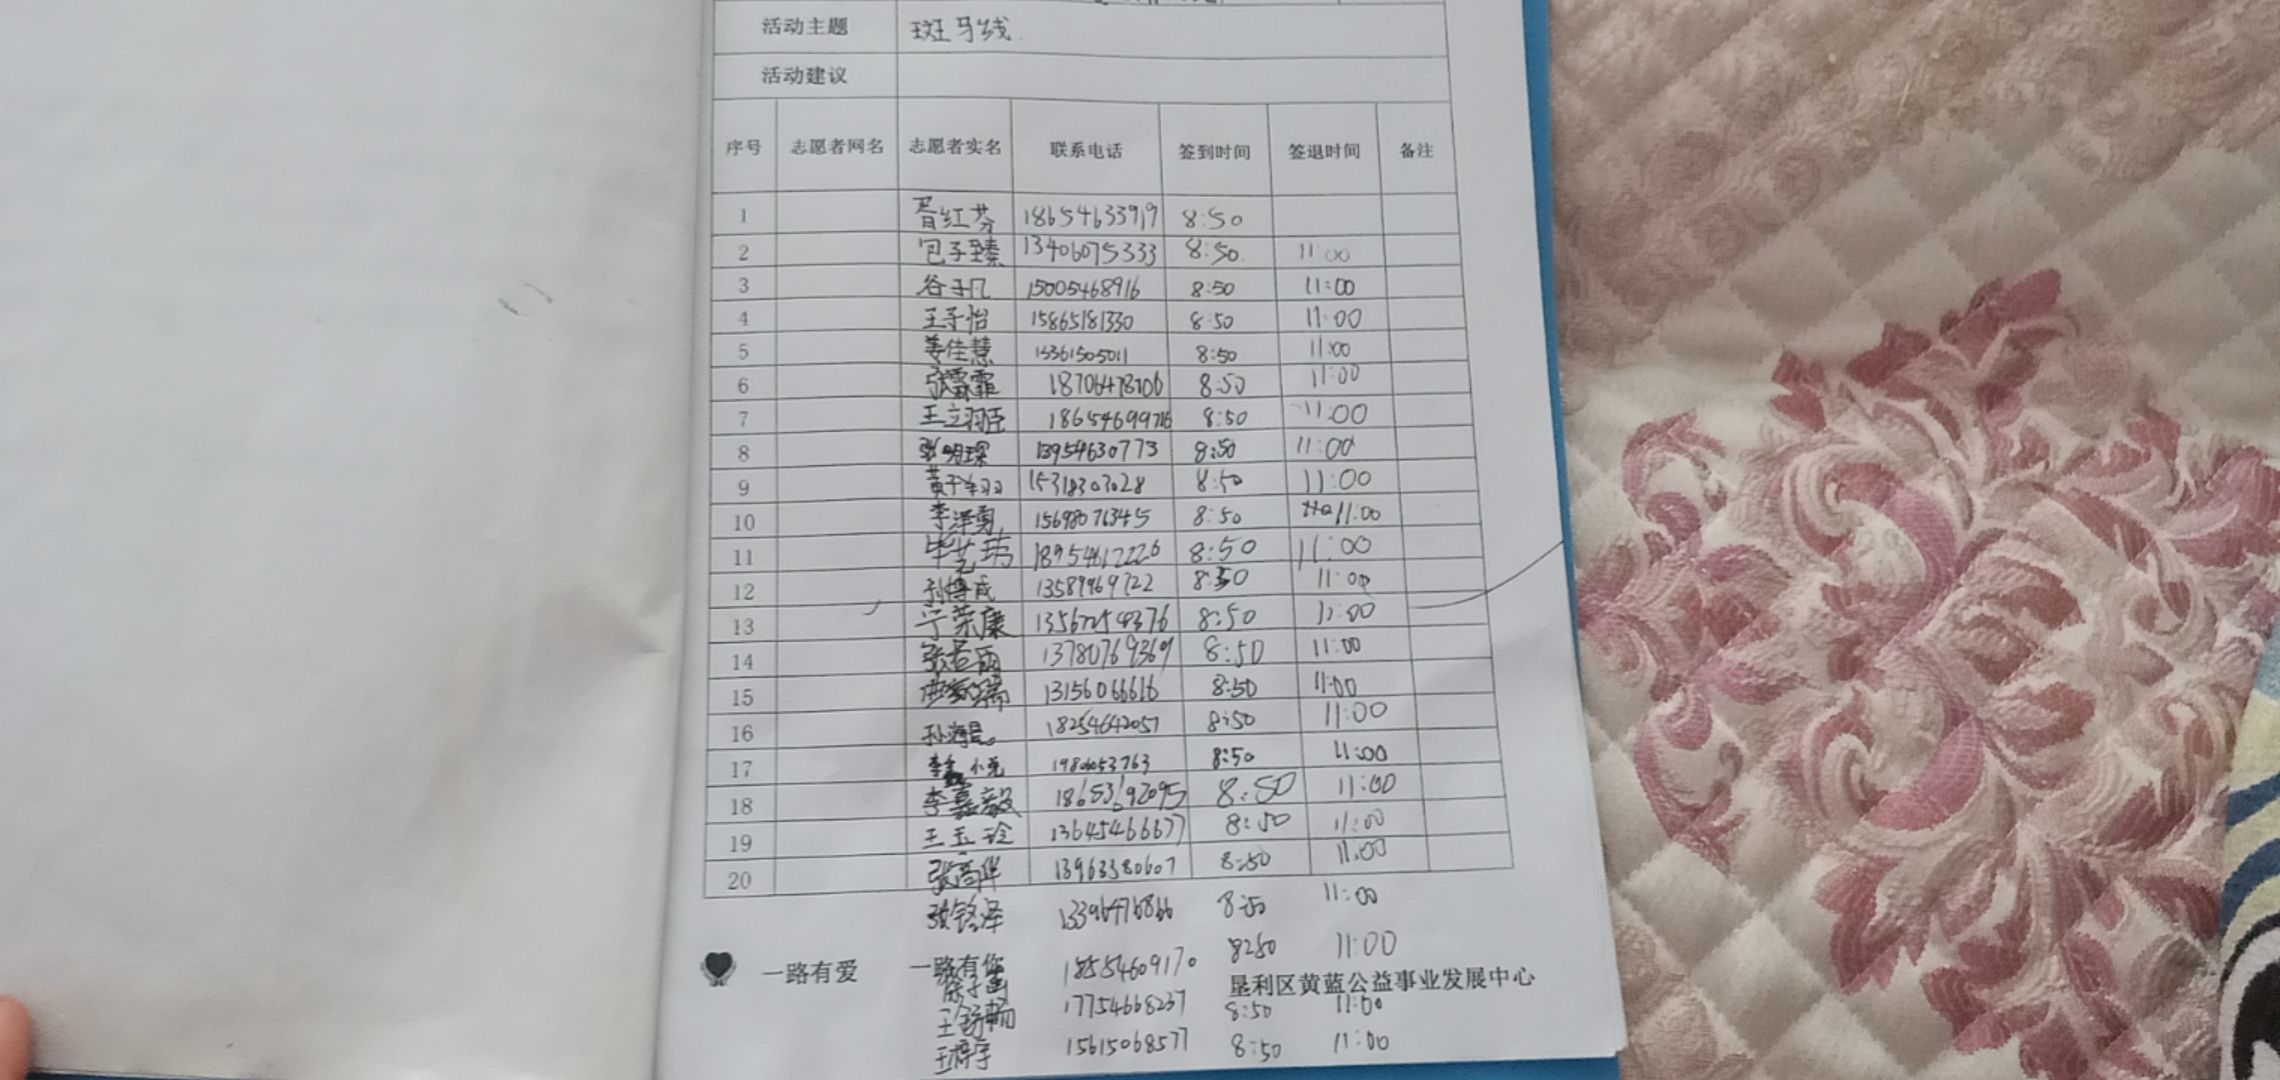 活动主题 斑马线
活动建议
序号 志愿者网名 志愿者实名 联系电话 签到时间 签退时间 备注
1 胥红芬 18654633919 8:50
2 包子臻 13406075333 8:50 11:00
3 谷子凡 15005468916 8:50 11:00
4 王子怡 15865181330 8:50 11:00
5 姜佳慧 15361505011 8:50 11:00
6 张霖霏 8:50 11:00
7 王立翔臣 18654699716 8:50 11:00
8 张明琛 13954630773 8:50 11:00
9 黄千翔 15318303028 8:50 11:00
10 李泽勇 15698076345 8:50 11:00
11 毕艺玮 18954612226 8:50 11:00
12 孙得成 13589969722 8:50 11:00
13 宁荣康 8:50 11:00
14 张若雨 13780769369 8:50 11:00
15 13156066616 8:50 11:00
16 孙海晨 18254642057 8:50 11:00
17 李小尧 8:50 11:00
18 李嘉毅 18653692095 8:50 11:00
19 王玉玲 13645466677 8:50 11:00
20 张高华 13963380607 8:50 11:00
张铭泽 13396476866 8:50 11:00
18554609170 8:50 11:00
一路有爱 一路有您 垦利区黄蓝公益事业发展中心
17754668237 8:50 11:00
王梓宇 15615068577 8:50 11:00